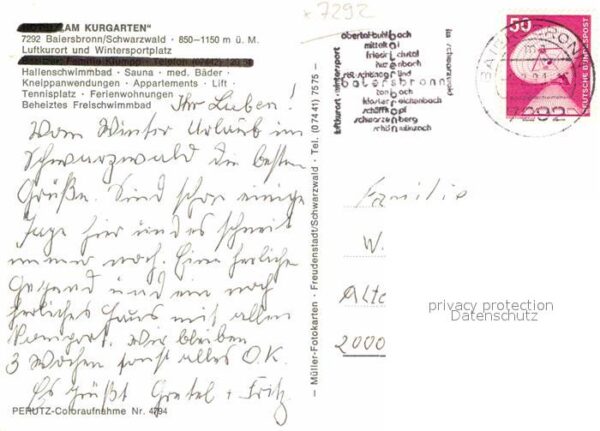 * 7292
AM KURGARTEN“
7292 Baiersbronn/Schwarzwald · 850–1150 m ü. M.
Luftkurort und Wintersportplatz
Hallenschwimmbad · Sauna · med. Bäder
Kneippanwendungen · Appartements · Lift ·
Tennisplatz · Ferienwohnungen ·
Beheiztes Freischwimmbad
Ihr Lieben!
Vom Winter Urlaub im
Schwarzwald die besten
Grüße. Sind schon einige
Tage hier und es schneit
immer noch. Eine herrliche
Gegend und ein noch
herrliches Haus mit allen
Komfort. Wir bleiben
3 Wochen sonst alles O.K.
Es grüßt Gretel + Fritz.
PERUTZ-Coloraufnahme Nr. 4794
— Müller-Fotokarten · Freudenstadt/Schwarzwald · Tel. (0 74 41) 75 75 —
luftkurort · wintersport
obertal-buhlbach
mitteltal
friedrichstal
huzenbach
röt-schönegründ
baiersbronn
tonbach
klosterreichenbach
schliffkopf
schwarzenberg
schönmünzach
im schwarzwald
50
DEUTSCHE BUNDESPOST
BAIERSBRONN
7292
Familie
W.
Alte
2000
privacy protection
Datenschutz